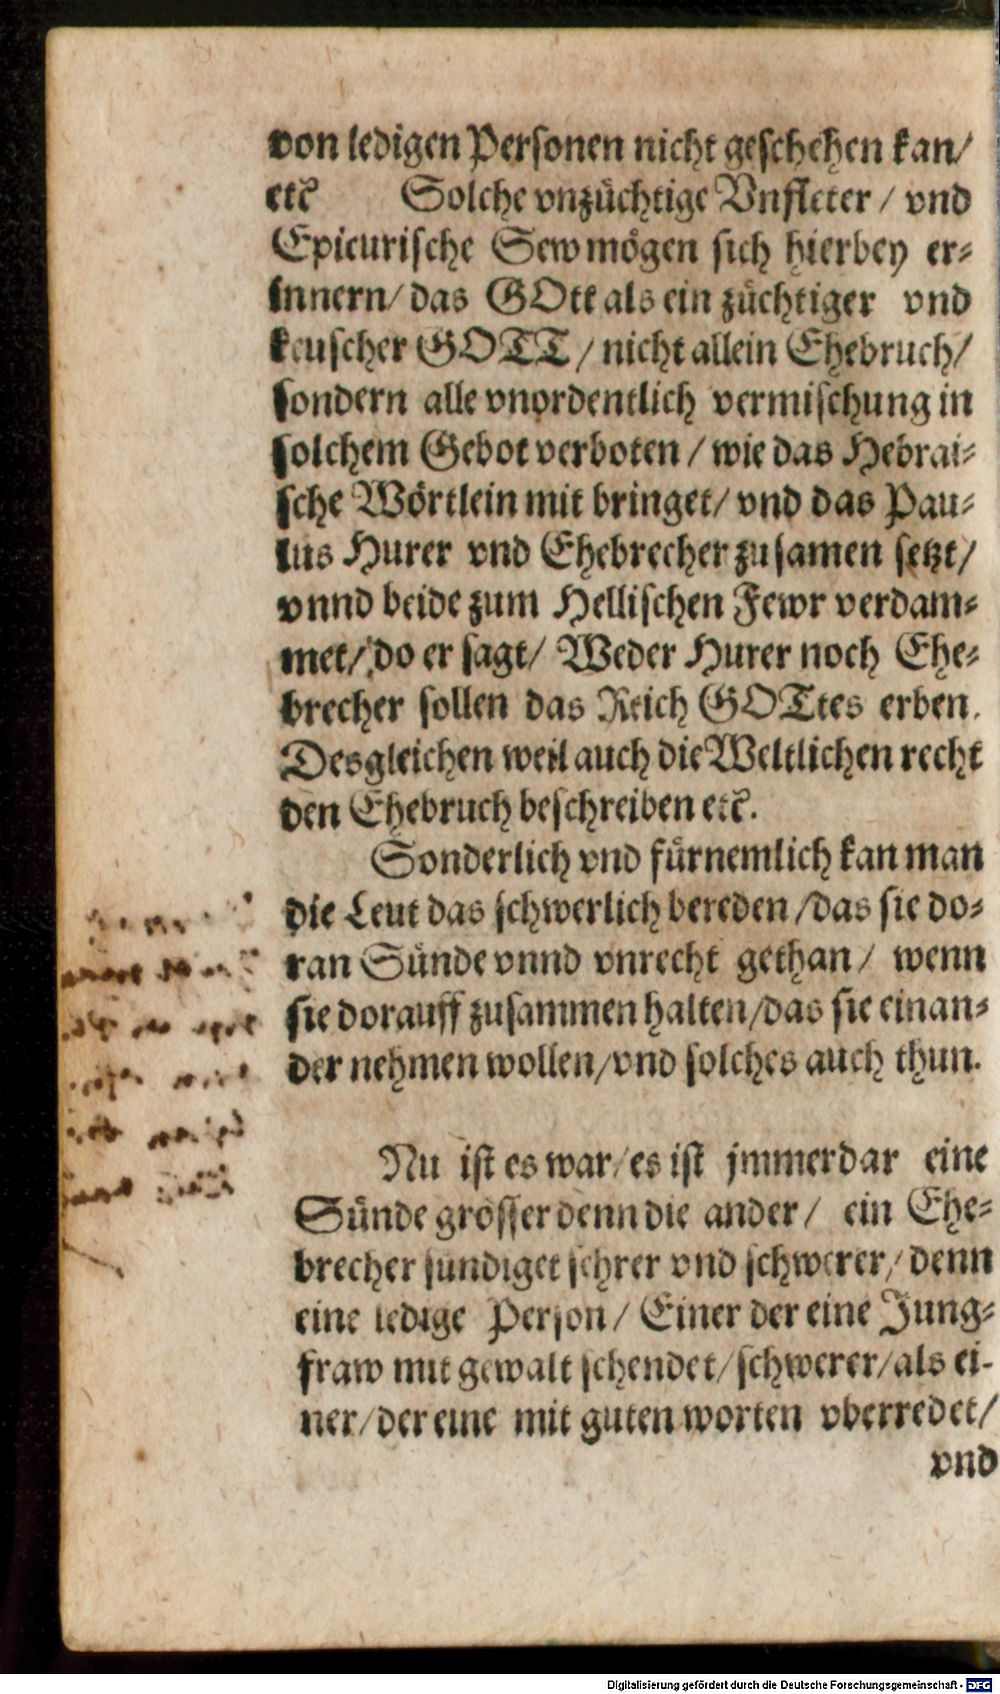 von ledigen Personen nicht geschehen kan/
etc̃ Solche vnzüchtige Vnfleter / vnd
Epicurische Sew mögen sich hierbey er-
innern/ das GOtt als ein züchtiger vnd
keuscher GOTT / nicht allein Ehebruch/
sondern alle vnordentlich vermischung in
solchem Gebot verboten / wie das Hebrai-
sche Wörtlein mit bringet/ vnd das Pau-
lus Hurer vnd Ehebrecher zusamen setzt/
vnnd beide zum Hellischen Fewr verdam-
met/ do er sagt/ Weder Hurer noch Ehe-
brecher sollen das Reich GOTtes erben.
Desgleichen weil auch die Weltlichen recht
den Ehebruch beschreiben etc̃.
Sonderlich vnd fürnemlich kan man
die Leut das schwerlich bereden /das sie do-
ran Sünde vnnd vnrecht gethan / wenn
sie dorauff zusammen halten/das sie einan-
der nehmen wollen/vnd solches auch thun.
Nu ist es war/es ist jmmerdar eine
Sünde grösser denn die ander / ein Ehe-
brecher sündiget sehrer vnd schwerer/ denn
eine ledige Person / Einer der eine Jung-
fraw mit gewalt schendet/schwerer/als ei-
ner/der eine mit guten worten vberredet/
vnd
Digitalisierung gefördert durch die Deutsche Forschungsgemeinschaft - DFG